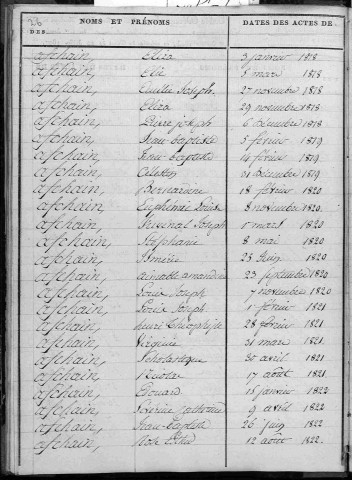 26
NOMS ET PRÉNOMS
DATES DES ACTES DE
DES
afchain, Eliza 3 janvier 1818
afchain, Elie 5 mars 1818
afchain, Emilie Joseph. 27 novembre 1818
afchain, Eliza 29 novembre 1818
afchain, Pierre joseph 6 décembre 1818
afchain, Jean-baptiste 5 février 1819
afchain, Jean-baptiste 14 février 1819
afchain, Célestin 21 décembre 1819
afchain, Bernardine 18 février 1820
afchain, Euphémie Louise 8 novembre 1820
afchain, Juvénal Joseph 1 mars 1820
afchain, Stéphanie 8 mai 1820
afchain, Désirée 25 juin 1820
afchain, aimable amandine 23 septembre 1820
afchain, Louis Joseph 7 novembre 1820
afchain, Louis Joseph 1 février 1821
afchain, henri théophile 28 février 1821
afchain, Virginie 21 mars 1821
afchain, Scholastique 30 avril 1821
afchain, Nicolas 17 août 1821
afchain, Edouard 15 janvier 1822
afchain, 9 avril 1822
afchain, Jean-baptiste 26 juin 1822
afchain, 12 août 1822